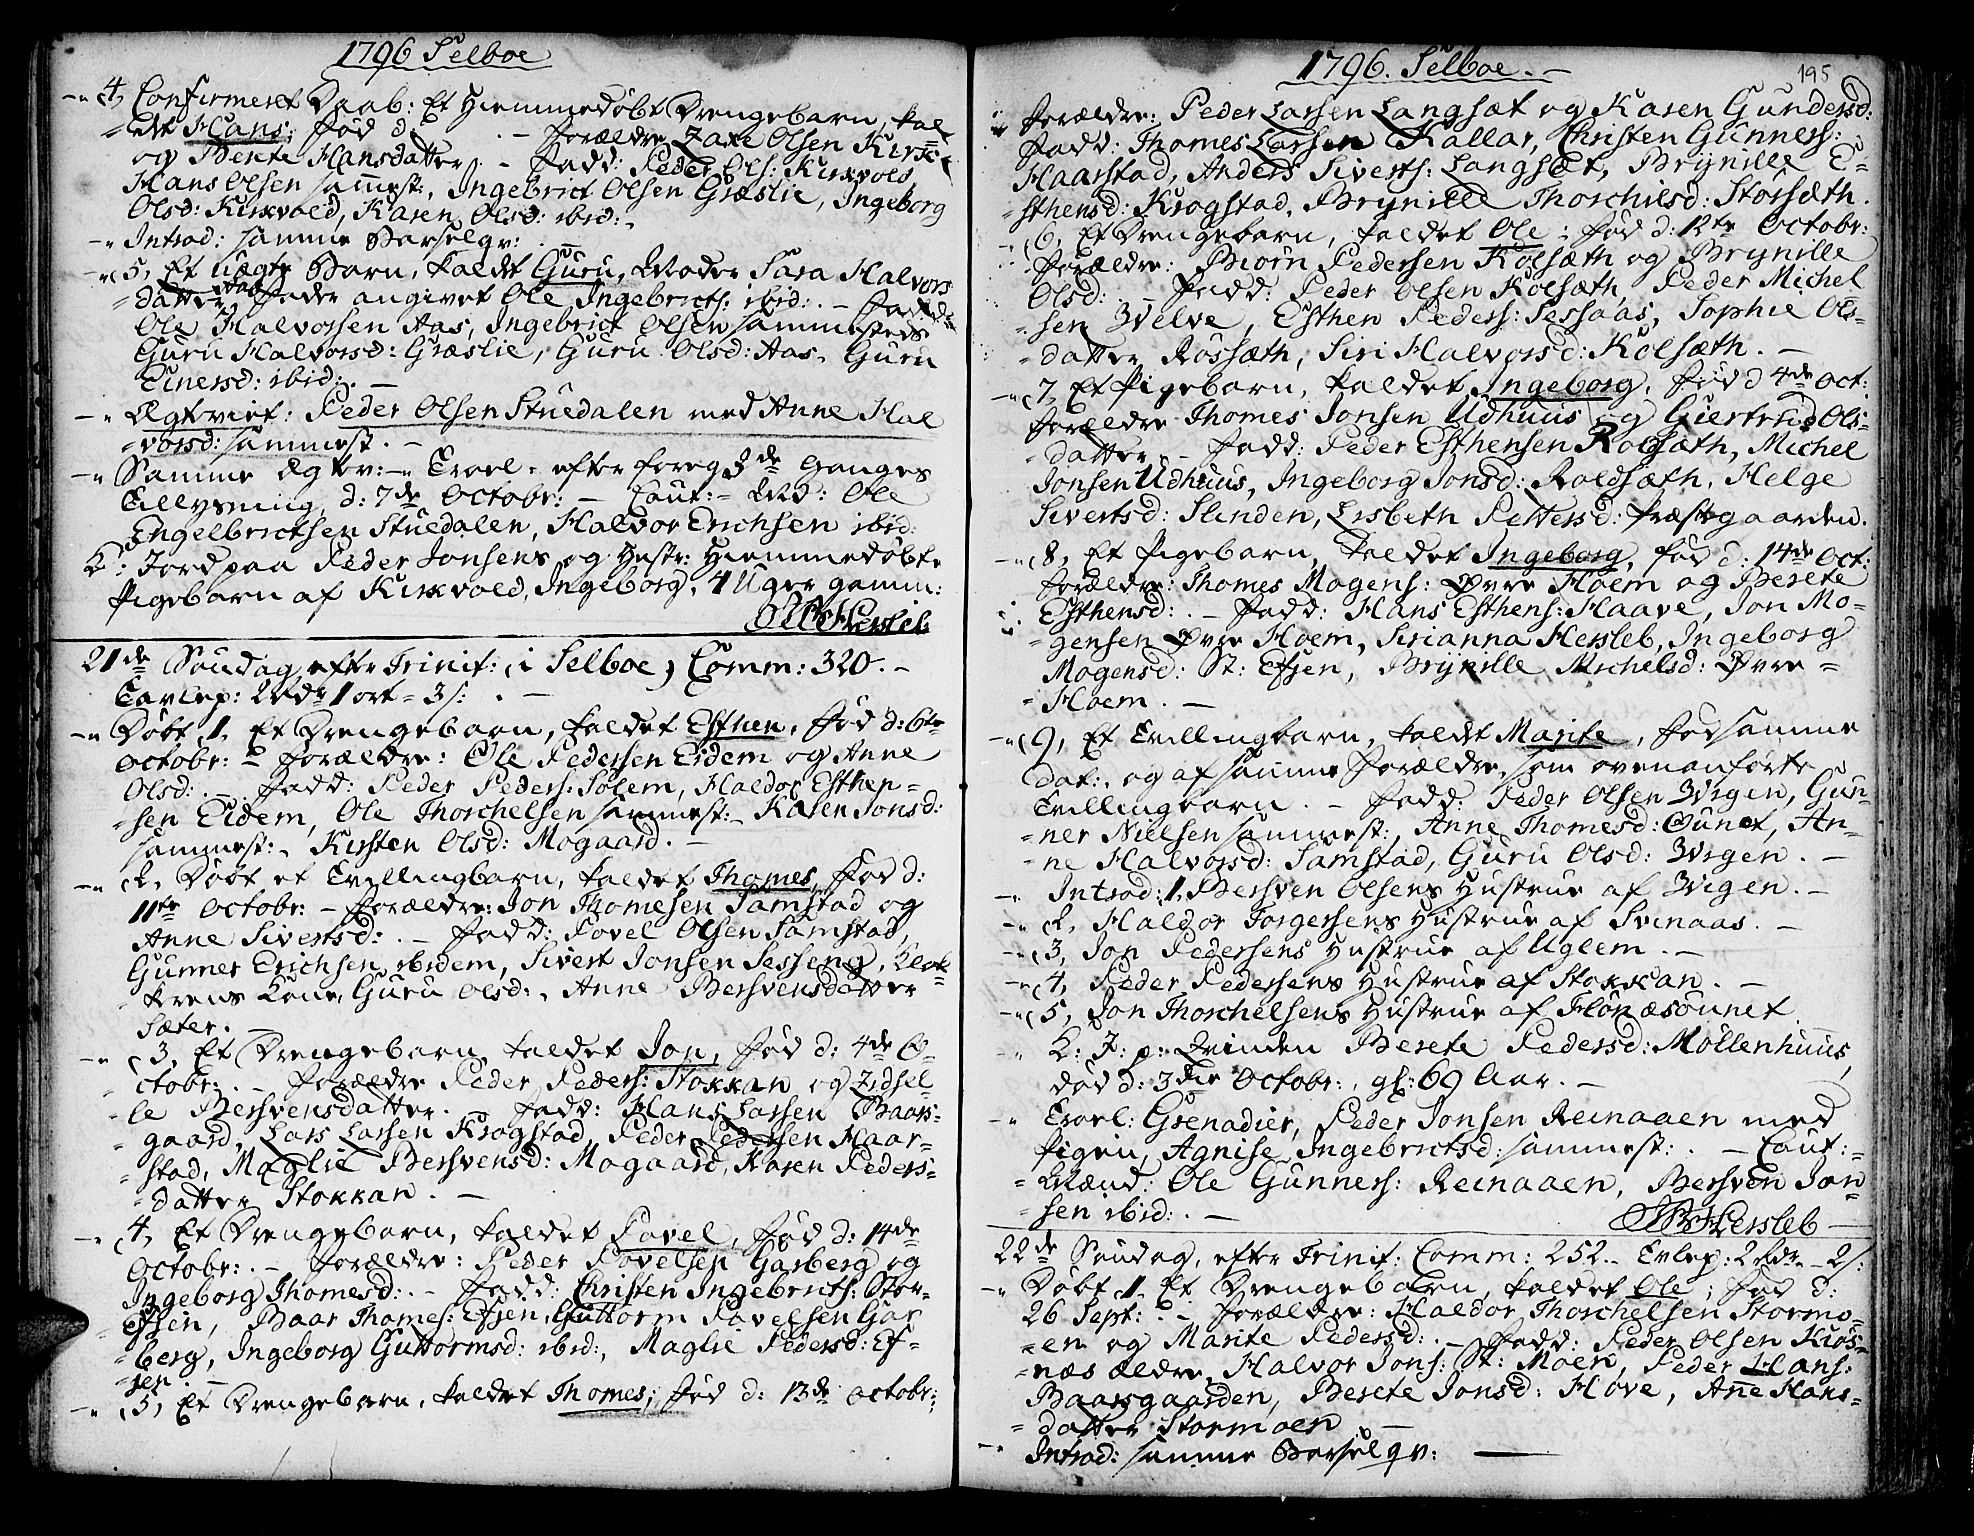 1796 Selboe
4, Confirmeret Daab: Et Hiemmedøbt Drengebarn, kal-
-det Hans; fød d: . - Forældre Zaxe Olsen Kirk-
og Berete Hansdatter. - Fadd: Peder Ols: Kirkvols
Hans Olsen sammest:, Ingebrict Olsen Græslie, Ingeborg
Olsd: Kirkvold, Karen Olsd: ibid:.
Introd: samme Barselqv:
5, Et uægte Barn, kaldet Guru, Moder Sara Halvors
datter Aas, Fader angivet Ole Ingebricts: ibid:. - Fadd:
Ole Halvorsen Aas, Ingebrict Olsen sammesteds
Guru Halvorsd: Græslie, Guru Olsd: Aas, Guru
Einersd: ibid:. -
Ægtviet: Peder Olsen Stuedalen med Anne Hal
-vorsd: sammest. -
Samme Ægtev: Trol. efter foreg 3de Ganges
Tillysning, d: 7de Octobr: - Caut: Md: Ole
Engelbrictsen Stuedalen, Halvor Erichsen ibid:
K: Jord paa Peder Jonsens og Hustr: Hiemmedøbte
Pigebarn af Kirkvold, Ingeborg, 4 Uger gamm:
Hersleb
21de Søndag efter Trinit: i Selboe, Comm: 320. -
Tavlep: 2 Rdr 1 ort - 3 s: . -
Døbt 1, Et Drengebarn, kaldet Esthen, fød d: 6te
Octobr: - Forældre: Ole Pedersen Eidem og Anne
Olsd: . - Fadd: Peder Peders: Solem, Haldor Esthen-
-sen Eidem, Ole Thorchelsen sammest: Karen Jonsd:
sammest:, Kirsten Olsd: Mogaard. -
2, Døbt et Tvillingbarn, kaldet Thomes, fød d:
11te Octobr: - Forældre: Jon Thomesen Samstad og
Anne Sivertsd: . - Fadd: Povel Olsen Samstad,
Gunner Erichsen ibidem, Sivert Jonsen Sesseng, Klok-
-kerens Kone, Guru Olsd:, Anne Bersvensdatter
Sæter. -
3, Et Drengebarn, kaldet Jon, fød d: 4de O-
ctobr: . - Forældre Peder Peders: Stokkan og Zidsel
-le Bersvensdatter. - Fadd: Hans Larsen Baars-
gaard, Lars Larsen Krogstad, Peder Pedersen Haar-
-stad, Maglie Bersvensd: Mogaard, Karen Peders-
-datter Stokkan. -
4, Et Drengebarn, kaldet Povel, fød d: 14de
Octobr: . - Forældre: Peder Povelsen Garberg og
Ingeborg Thomesd: . - Fadd: Christen Ingebricts: Stor-
Efsen, Baar Thomes: Efsen, Guttorm Povelsen Gar
-berg, Ingeborg Guttormsd: ibid:, Maglie Pedersd: Ef-
-sen. -
5, Et Drengebarn, kaldet Thomes, fød d: 13de Octobr:
1796. Selboe. -
195
Forældre: Peder Larsen Langsæt og Karen Gundersd:
Fadd: Thomes Larsen Kallar, Christen Gunners:
Haarstad, Anders Siverts: Langsæt, Brynille E-
-sthensd: Krogstad, Brynille Thorchilsd: Storsæth.
6, Et Drengebarn, kaldet Ole; fød d: 12te Octobr:
Forældre: Biørn Pedersen Kolsæth og Brynille
Olsd: . - Fadd: Peder Olsen Kolsæth, Peder Michel
-sen Zvelve, Esthen Peders: Sessaas, Sophie Ols-
-datter Rossæth, Siri Halvorsd: Kolsæth. -
7, Et Pigebarn, kaldet Ingeborg, fød d 4de Oct:
Forældre Thomes Jonsen Udhuus og Giertrud Ols-
-datter. - Fadd: Peder Esthensen Rolsæth, Michel
Jonsen Udhuus, Ingeborg Jonsd: Roldsæth, Helge
Sivertsd: Slinden, Lisbeth Pettersd: Præstegaarden.
8, Et Pigebarn, kaldet Ingeborg, fød d: 14de Oct:
Forældre: Thomes Mogens: Øvre Hoem og Berete
Esthensd: . - Fadd: Hans Esthens: Haave, Jon Mo-
-gensen Øvre Hoem, Sirianna Hersleb, Ingeborg
Mogensd: St: Efsen, Brynille Michelsd: Øvre-
-Hoem. -
9, Et Tvillingbarn, kaldt Marite, fød samme
dat:, og af samme Forældre, som ovenanførte
Tvillingbarn. - Fadd: Peder Olsen Zvigen, Gun-
-ner Nielsen sammest:, Anne Thomesd: Ounet, An-
-ne Halvorsd: Samstad, Guru Olsd: Zvigen. -
Introd: 1, Bersven Olsens Hustrue af Zvigen. -
2, Haldor Torgersens Hustrue af Svinaas. -
3, Jon Pedersens Hustrue af Ugleem. -
4, Peder Pedersens Hustrue af Stokkan. -
5, Jon Thorchelsens Hustrue af Flønæsounet.
K: J: p: Qvinden Berete Pedersd: Møllenhuus,
død d: 3die Octobr:, gl: 69 Aar. -
Trol: Grenadier, Peder Jonsen Reinaaen med
Pigen, Agnise Ingebrictsd: sammest: . - Caut:-
-Mænd: Ole Gunners: Reinaaen, Bersven Jon
-sen ibid: . -
Hersleb
22de Søndag, efter Trinit: Comm: 252. - Tvlep: 2 Rdr - 2 s:
Døbt 1, Et Drengebarn, kaldet Ole, fød d:
26 Sept: - Forældre: Haldor Thorchelsen Stormo-
-en og Marite Pedersd: . - Fadd: Peder Olsen Kiøs-
-næs ældre, Halvor Jons: St: Moen, Peder Hans:
Baarsgaarden, Berete Jonsd: Hove, Anne Hans-
-datter Stormoen. -
Introd: samme Barselqv: